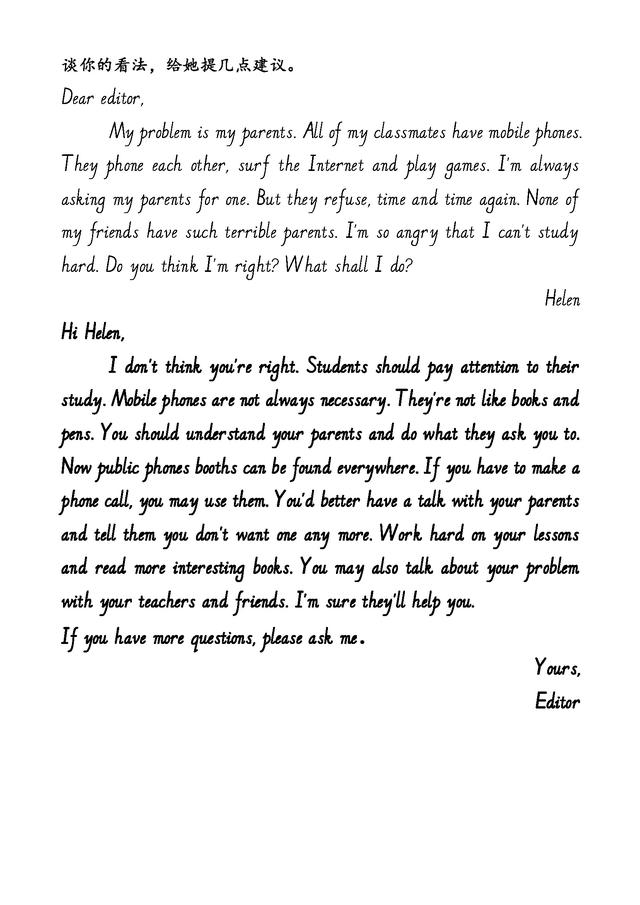 谈你的看法，给她提几点建议。
Dear editor,
My problem is my parents. All of my classmates have mobile phones.
They phone each other, surf the Internet and play games. I'm always
asking my parents for one. But they refuse, time and time again. None of
my friends have such terrible parents. I'm so angry that I can't study
hard. Do you think I'm right? What shall I do?
Helen
Hi Helen,
I don't think you're right. Students should pay attention to their
study. Mobile phones are not always necessary. They're not like books and
pens. You should understand your parents and do what they ask you to.
Now public phones booths can be found everywhere. If you have to make a
phone call, you may use them. You'd better have a talk with your parents
and tell them you don't want one any more. Work hard on your lessons
and read more interesting books. You may also talk about your problem
with your teachers and friends. I'm sure they'll help you.
If you have more questions, please ask me.
Yours,
Editor